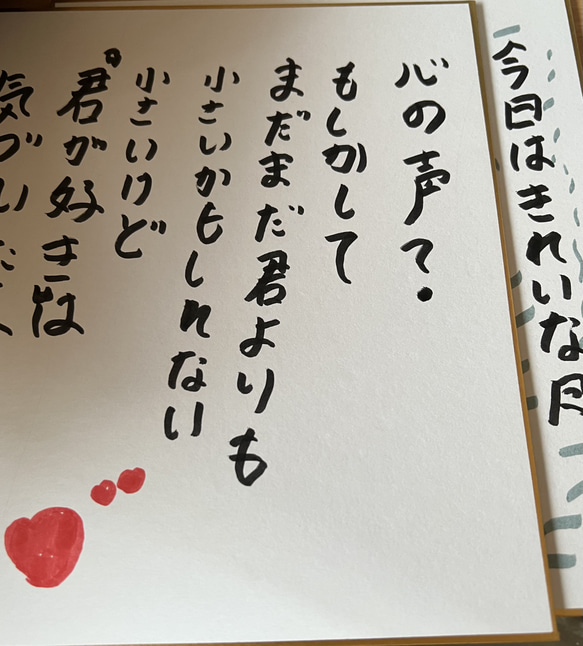 今日はきれいな月
心の声?
もしかして
まだまだ君よりも
小さいかもしれない
小さいけど
君が好きは
気づいた